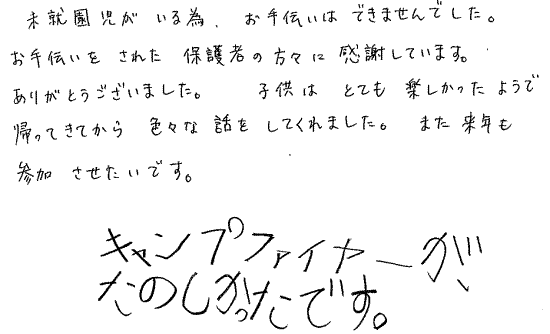 未就園児が いる為、お手伝いは できませんでした。
お手伝いを された 保護者の方々に 感謝しています。
ありがとうございました。 子供は とても 楽しかったようで
帰ってきてから 色々な 話を してくれました。 また来年も
参加 させたいです。
キャンプファイヤーが
たのしかったです。